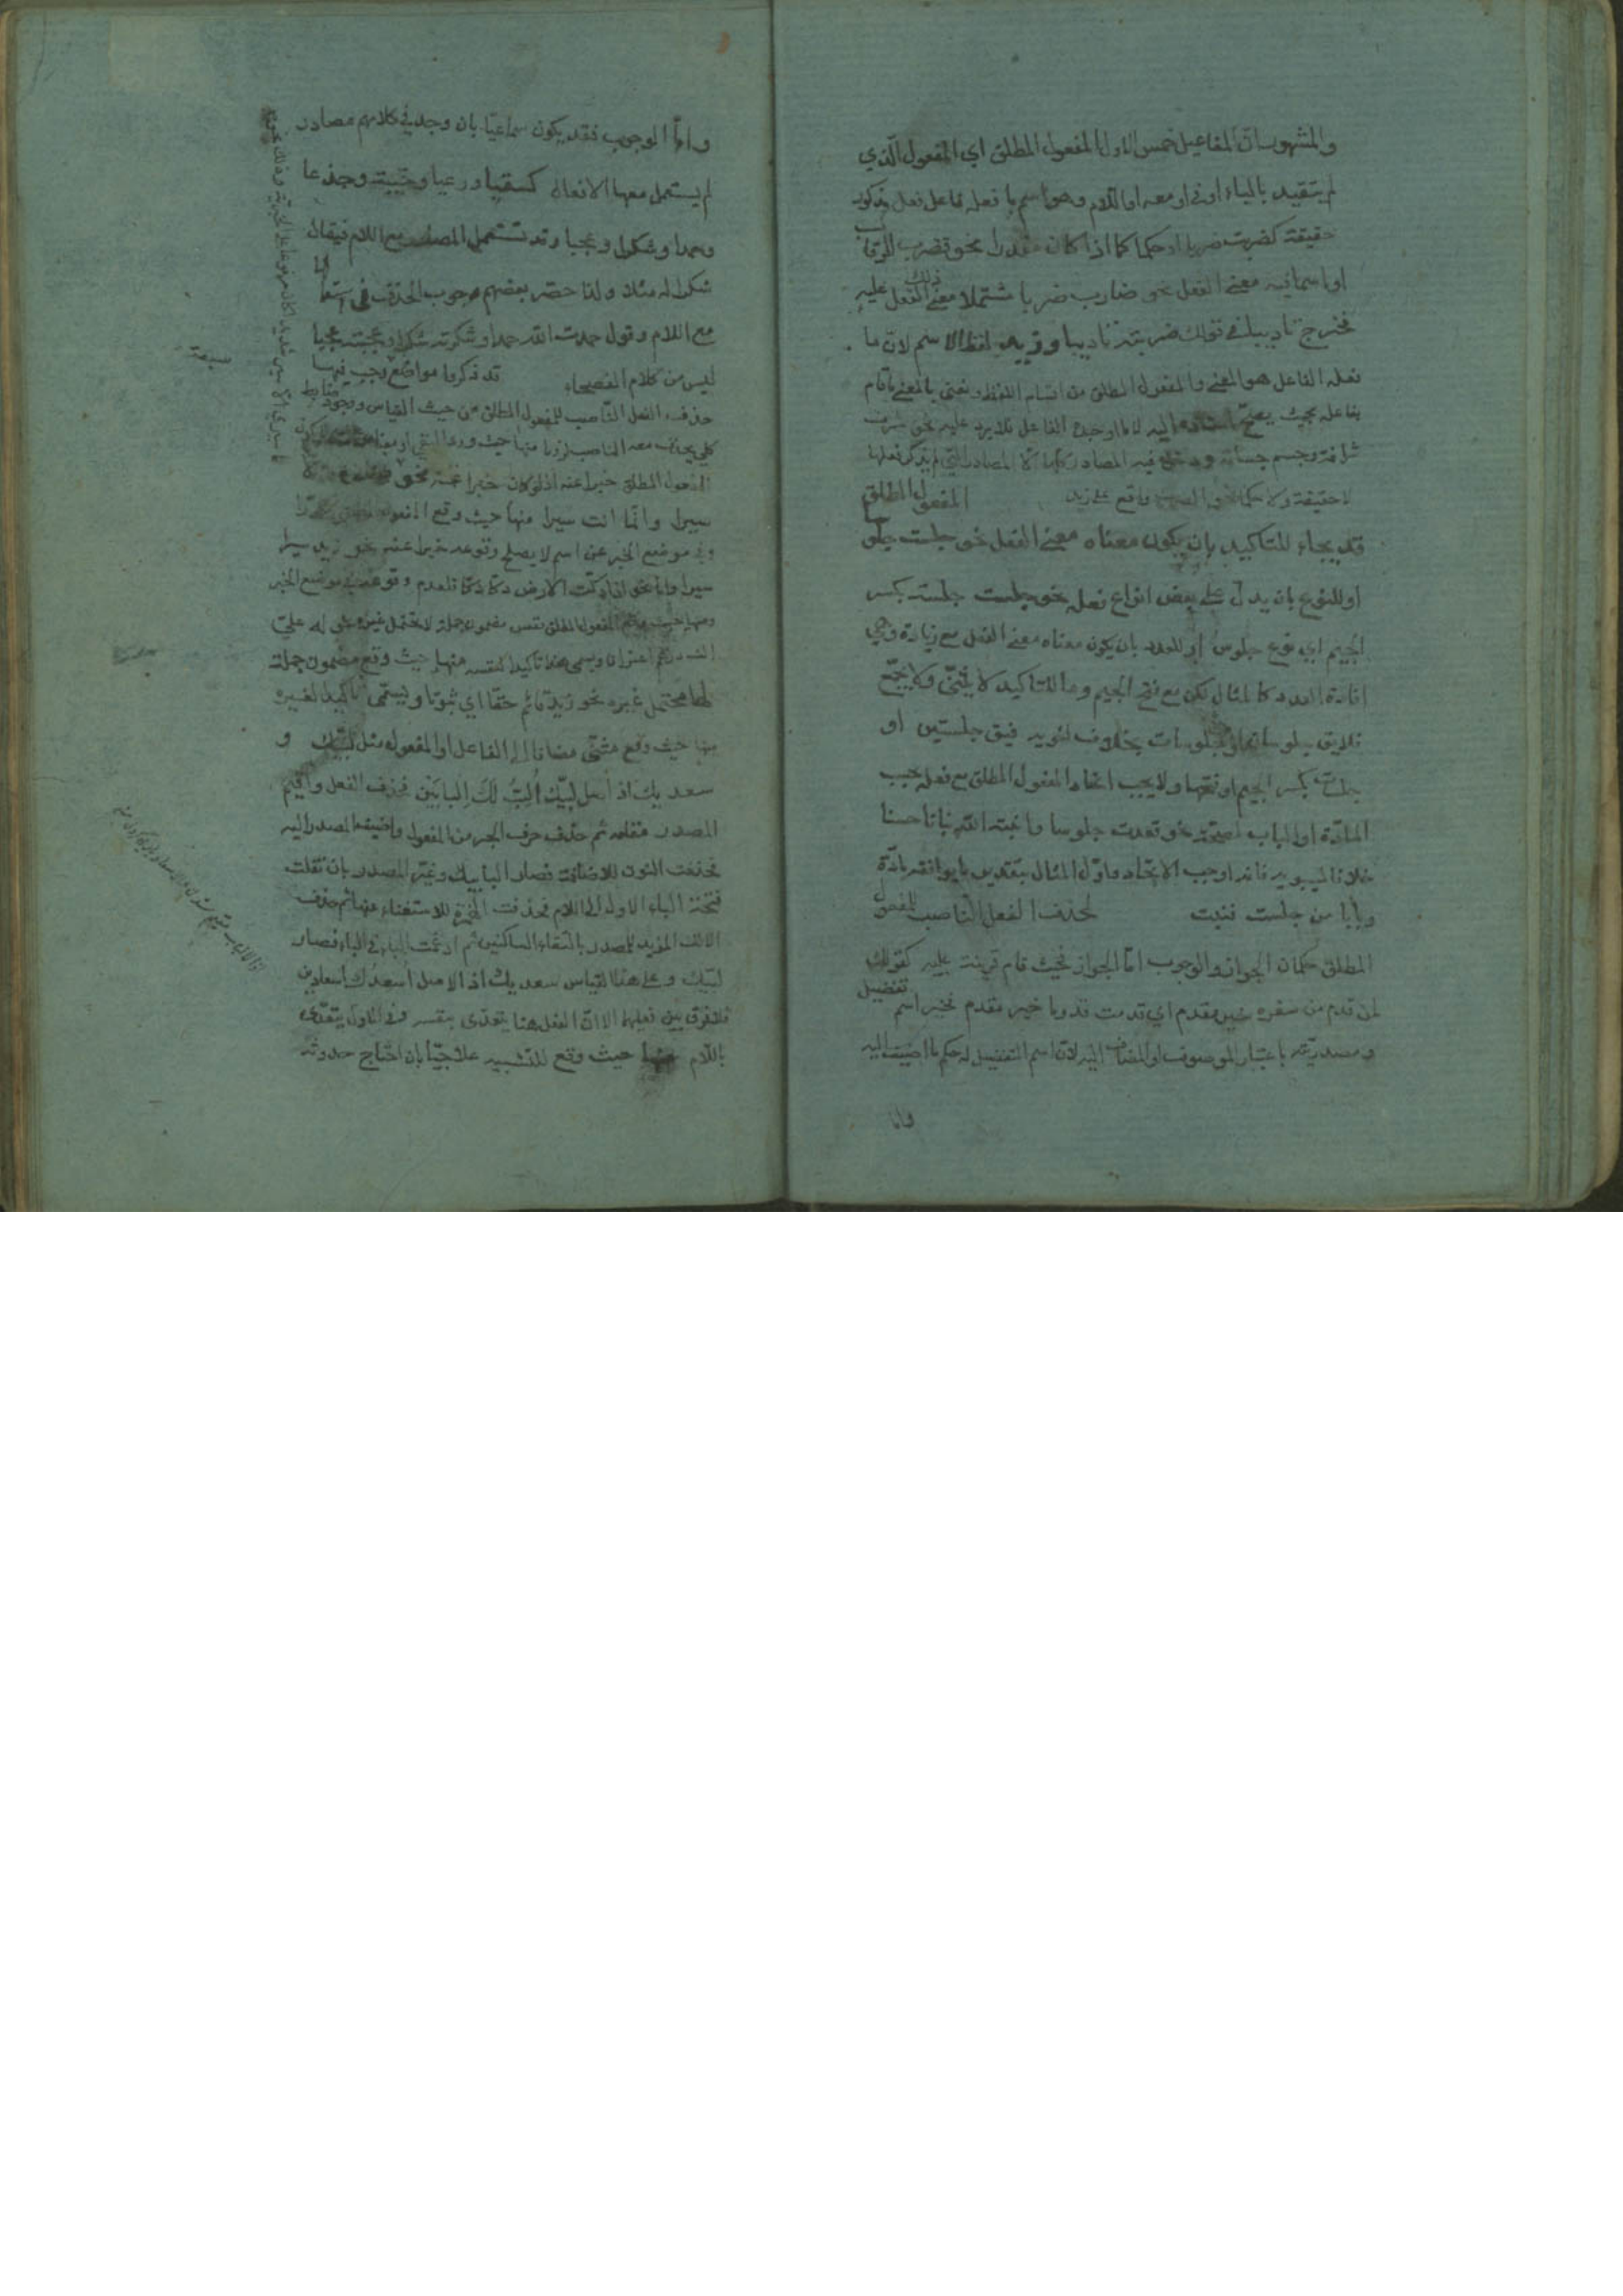 والمشهور ان المفاعيل خمس الاول المفعول المطلق اي المفعول الذي
لم يتقيد بالباء او في او معه او اللام وهو اسم ما فعله فاعل فعل مذكور
حقيقة كضربت ضربا او حكما كما اذا كان مقدرا نحو فضرب الرقاب
او اسما فيه معنى الفعل نحو ضارب ضربا مشتملا معنى ذلك الفعل عليه
فخرج تاديبا في قولك ضربته تاديبا وزيد لفظ الاسم لان ما
فعله الفاعل هو المعنى والمفعول المطلق من اقسام اللفظ ونعني بالمعنى ما قام
بفاعله بحيث يصح اسناده اليه لا ما اوجده الفاعل فلا يرد عليه نحو شرف
شرافة وجسم جسامة ودخل فيه المصادر كلها الا المصادر التي لم يذكر فعلها
لا حقيقة ولا حكما نحو الضرب واقع على زيد المفعول المطلق
قد يجاء للتاكيد بان يكون معناه معنى الفعل نحو جلست جلوسا
او للنوع بان يدل على بعض انواع فعله نحو جلست جلسة بكسر
الجيم اي نوع جلوس او للعدد بان يكون معناه معنى الفعل مع زيادة وهي
افادة العدد كالمثال لكن مع فتح الجيم وما للتاكيد لا يثنى ولا يجمع
فلا يق جلوسان او جلوسات بخلاف اخويه فيق جلستين او
جلسات بكسر الجيم او فتحها ولا يجب اتحاد المفعول المطلق مع فعله بحسب
المادة او الباب لصحة نحو قعدت جلوسا وانبته الله نباتا حسنا
خلافا لسيبويه فانه اوجب الاتحاد واول المثال بتقدير ما يوافقه مادة
وبابا من جلست فنبت لحذف الفعل الناصب للمفعول
المطلق حكمان الجواز والوجوب اما الجواز فحيث قام قرينة عليه كقولك
لمن قدم من سفره خير مقدم اي قدمت قدوما خير مقدم فخير اسم تفضيل
ومصدريته باعتبار الموصوف او المضاف اليه لان اسم التفضيل له حكم ما اضيف اليه
واما
واما الوجوب فقد يكون سماعيا بان وجد في كلامهم مصادر
لم يستعمل معها الافعال كسقيا ورعيا وخيبة وجدعا
وحمدا وشكرا وعجبا وقد تستعمل المصدر مع اللام فيقال
شكرا له مثلا ولذا حصر بعضهم وجوب الحذف في استعمالها
مع اللام وقول حمدت الله حمدا وشكرته شكرا وعجبته عجبا
ليس من كلام الفصحاء قد ذكروا مواضع وجب فيها
حذف الفعل الناصب للمفعول المطلق من حيث القياس ووجود ضابط
كلي يحذف معه الناصب لزوما منها حيث ورد النفي او معناه
المفعول المطلق خبرا عنه اذ لو كان خبرا عنه نحو
سيرا وانما انت سيرا منها حيث وقع المفعول المطلق مكررا
وفي موضع الخبر عن اسم لا يصلح وقوعه خبرا عنه نحو زيد سيرا
سيرا واما نحو اذا دكت الارض دكا دكا فلعدم وقوعه في موضع الخبر
ومنها حيث وقع المفعول المطلق نفس مضمون جملة لا يحتمل غيره نحو له علي
الف درهم اعترافا ويسمى هذا تاكيدا لنفسه منها حيث وقع مضمون جملة
لها محتمل غيره نحو زيد قائم حقا اي ثبوتا ويسمى تاكيدا لغيره
منها حيث وقع مثنى مضافا الى الفاعل او المفعول مثل لبيك و
سعديك اذ اصل لبيك الب لك البابين فحذف الفعل واقيم
المصدر مقامه ثم حذف حرف الجر من المفعول واضيف المصدر اليه
فحذفت النون للاضافة فصار البابيك وغير المصدر بان نقلت
فتحة الباء الاول الى اللام فحذفت الهمزة للاستغناء عنها ثم حذف
الالف المزيد للمصدر بالتقاء الساكنين ثم ادغمت الباء في الباء فصار
لبيك وعلى هذا القياس سعديك اذ الاصل اسعدك اسعادين
فلا فرق بين فعليهما الا ان الفعل هنا يتعدى بنفسه وفي الاول يتعدى
باللام منها حيث وقع للتشبيه علاجيا بان احتاج حدوثه
سبعة